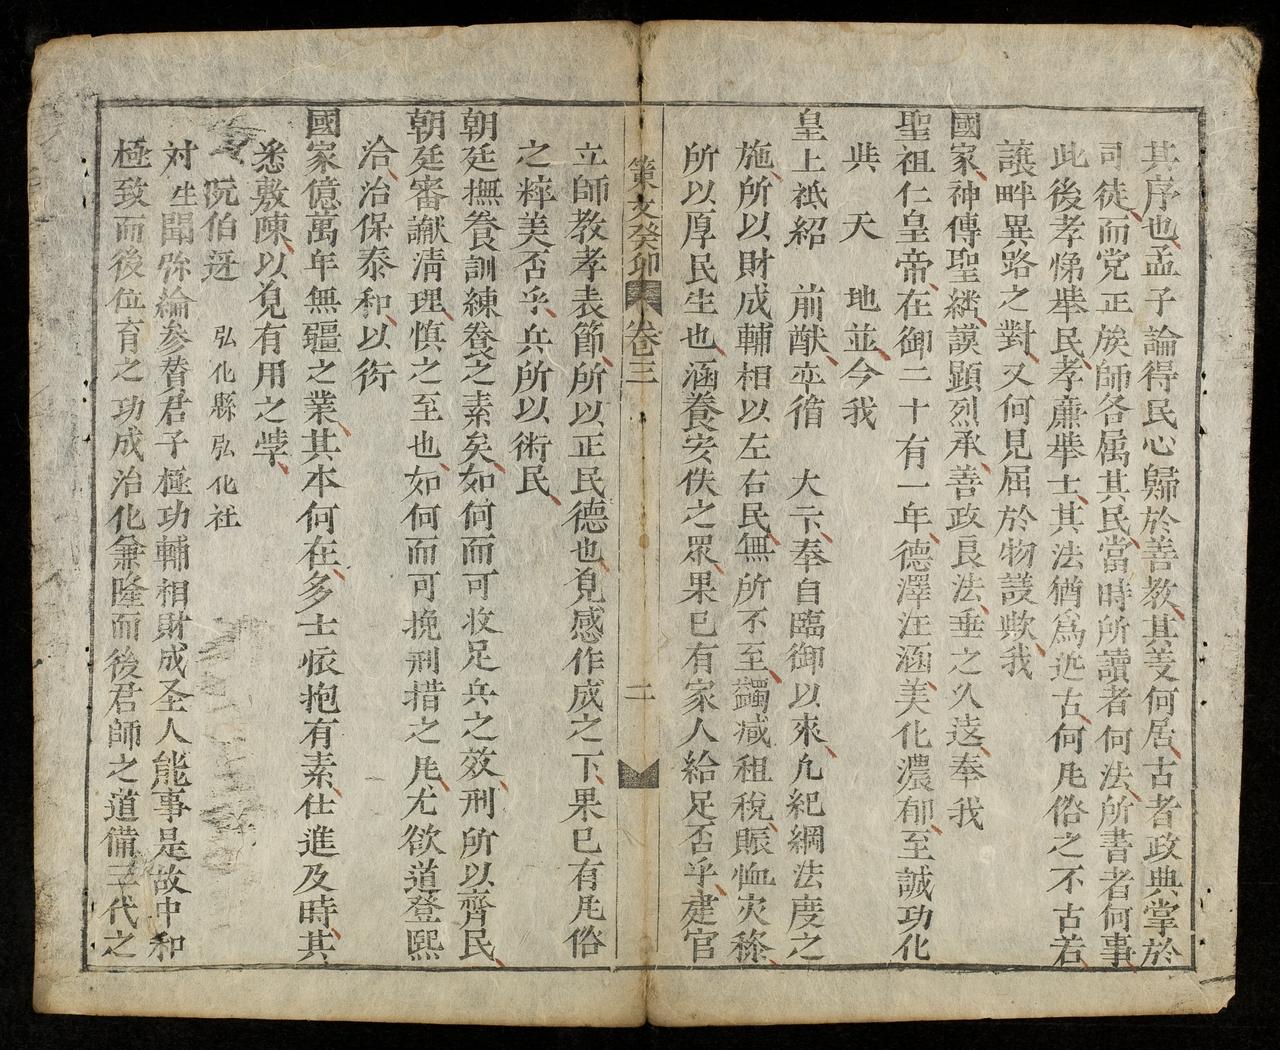 其序也孟子論得民心歸於善教其義何居古者政典掌於
司徒而党正族師各属其民當時所讀者何法所書者何事
此後孝悌举民孝亷举士其法猶爲近古何凨俗之不古若
讓畔異路之對又何見屈於物議欤我
國家神傳聖繼謨顯烈承善政良法垂之久遠奉我
聖祖仁皇帝在御二十有一年德澤汪涵美化濃郁至誠功化
與天地並今我
皇上祗紹前猷卒循大卞奉自臨御以來凢紀綱法度之
施所以財成輔相以左右民無所不至蠲减租稅賑恤灾
所以厚民生也涵養安佚之眾果已有家人給足否乎建官
策文癸卯 卷三 二
立師教孝表節所以正民德也覓感作成之下果已有凨俗
之粹美否乎兵所以術民
朝廷撫養訓練養之素矣如何而可收足兵之效刑所以齊民
朝廷審讞清理慎之至也如何而可挽刑措之凨尤欲道登熙
洽治保泰和以衍
國家億萬年無疆之業其本何在多士懷抱有素仕進及時其
悉敷陳以覓有用之學
阮伯迓 弘化縣弘化社
対 生聞弥綸参賛君子極功輔相財成圣人能事是故中和
極致而後位育之功成治化兼隆而後君師之道備三代之